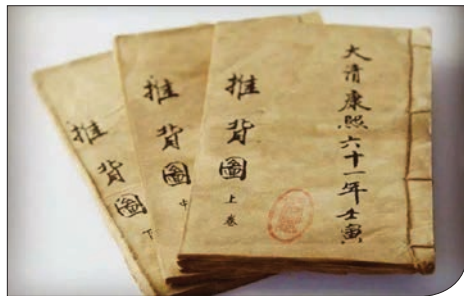 大清康熙六十一年壬寅
推背圖上卷
推背圖中
推背圖下